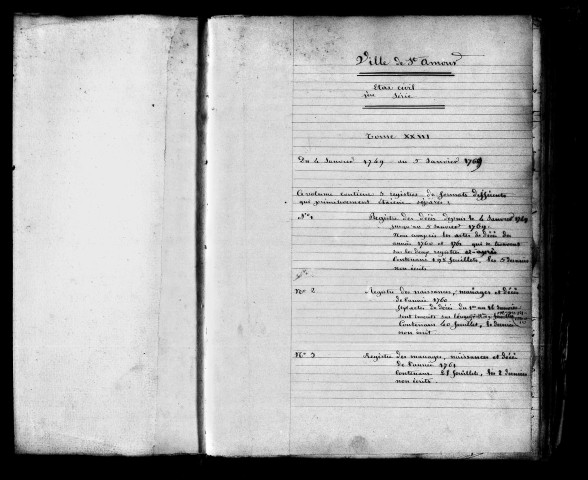 Ville de St Amour
Etat civil
1ère Série
Tome XXIII
Du 4 Janvier 1749 au 5 Janvier 1769
Ce volume contient 3 registres de formats différents
qui primitivement étaient séparés :
No 1 Registre des décès depuis le 4 Janvier 1749
jusqu'au 5 Janvier 1769.
Non compris les actes de décès des
années 1760 et 1761 qui se trouvent
sur les deux registres ci-après
Contenant 192 feuillets, les 5 derniers
non écrits
No 2 Registre des naissances, mariages et décès
de l'année 1760
actes de décès du 1er au 26 Janvier
sont inscrits sur
Contenant 40 feuillets, le dernier
non écrit
No 3 Registre des mariages, naissances et décès
de l'année 1761
Contenant 28 feuillets, les 2 derniers
non écrits.